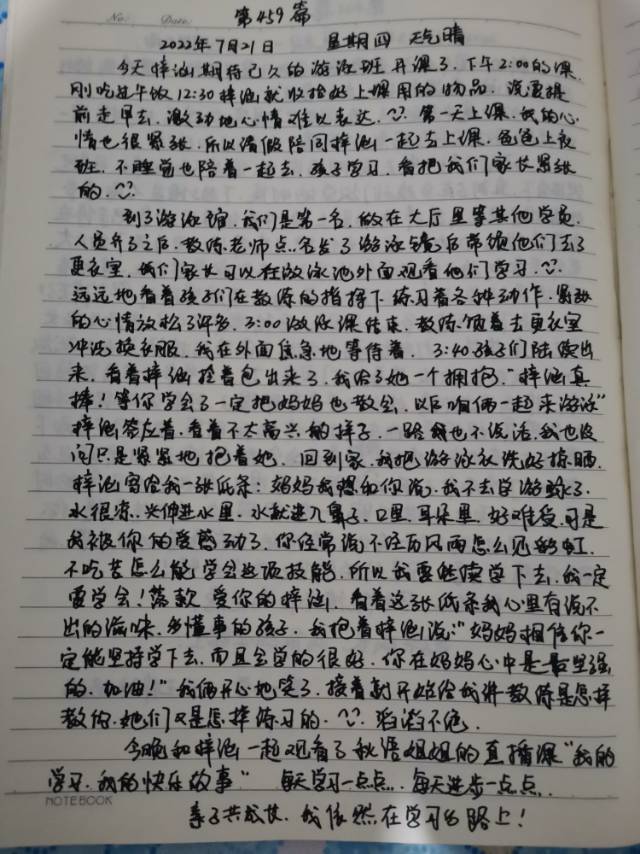 第459篇
No. Date.
2022年7月21日 星期四 天气晴
今天梓涵期待已久的游泳班开课了,下午2:00的课,
刚吃过午饭12:30梓涵就收拾好上课用的物品,说要提
前走早去,激动地心情难以表达,第一天上课,我的心
情也很紧张,所以请假陪同梓涵一起去上课,爸爸上夜
班,不睡觉也陪着一起去,孩子学习,看把我们家长紧张
的,
到了游泳馆,我们是第一名,做在大厅里等其他学员,
人员齐了之后,教练老师点名发了游泳镜后带领他们去了
更衣室,我们家长可以在游泳池外面观看他们学习,
远远地看着孩子们在教练的指挥下练习着各种动作,紧张
的心情放松了许多,3:00游泳课结束,教练领着去更衣室
冲洗换衣服,我在外面焦急地等待着,3:40孩子们陆续出
来,看着梓涵拎着包出来了,我给了她一个拥抱,“梓涵真
棒!等你学会了一定把妈妈也教会,以后咱俩一起来游泳”
梓涵答应着,看着不太高兴的样子,一路我也不说话,我也没
问只是紧紧地抱着她,回到家,我把游泳衣洗好晾晒,
梓涵写给我一张纸条:妈妈我想和你说,我不去学游泳了,
水很凉,头伸进水里,水就进入鼻子,口里,耳朵里,好难受,可是
我被你的爱感动了,你经常说不经历风雨怎么见彩虹,
不吃苦怎么能学会这项技能,所以我要继续学下去,我一定
要学会!落款 爱你的梓涵,看着这张纸条我心里有说不
出的滋味,多懂事的孩子,我抱着梓涵说:“妈妈相信你一
定能坚持学下去,而且会学的很好,你在妈妈心中是最坚强
的,加油!”我俩开心地笑了,接着就开始给我讲教练是怎样
教的,她们又是怎样练习的,滔滔不绝,
今晚和梓涵一起观看了秋语姐姐的直播课“我的
学习,我的快乐故事” 每天学习一点点,每天进步一点点,
NOTEBOOK
亲子共成长,我依然在学习的路上!